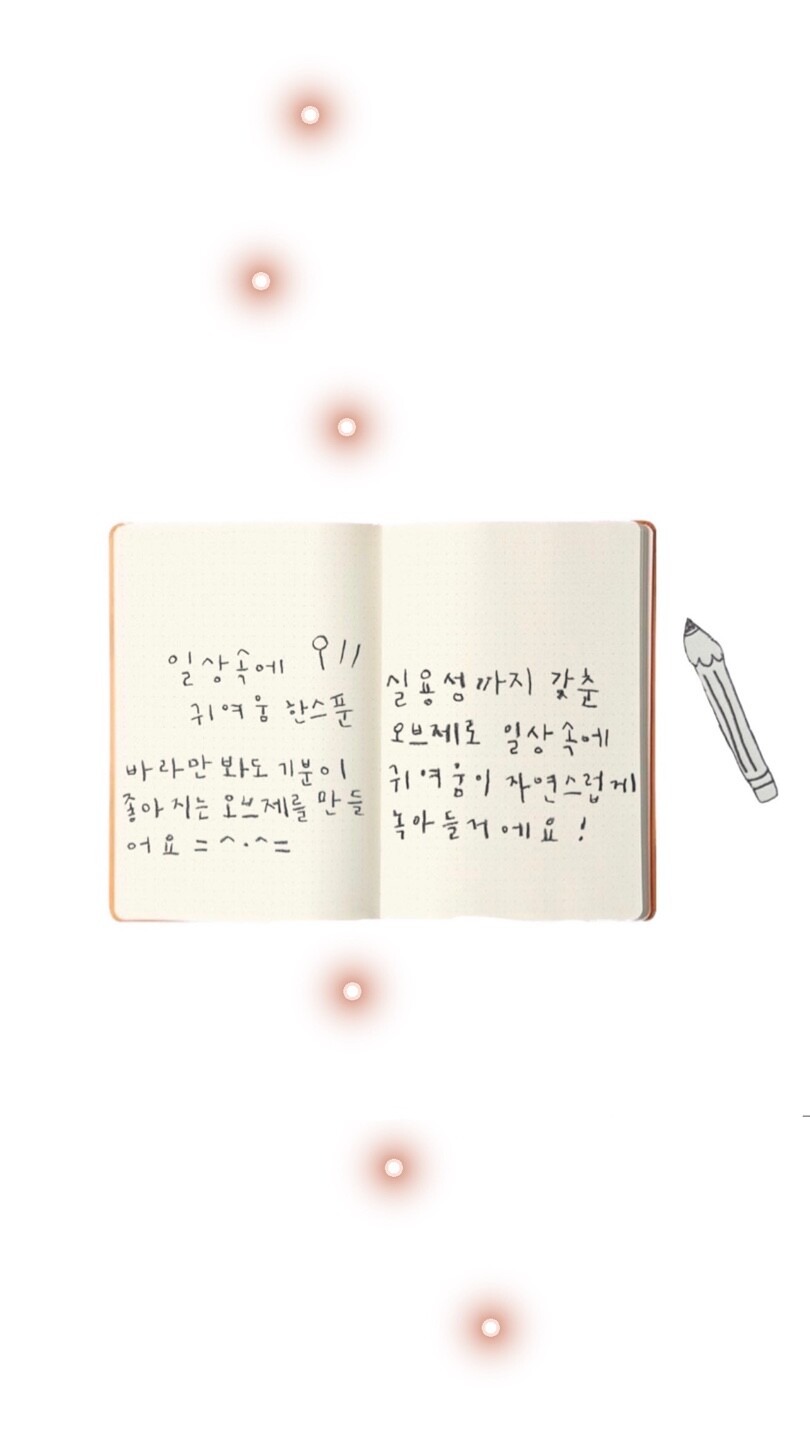 일상속에
귀여움 한스푼
바라만 봐도 기분이
좋아지는 오브제를 만들
어요 =^.^=
실용성까지 갖춘
오브제로 일상속에
귀여움이 자연스럽게
녹아들거에요!